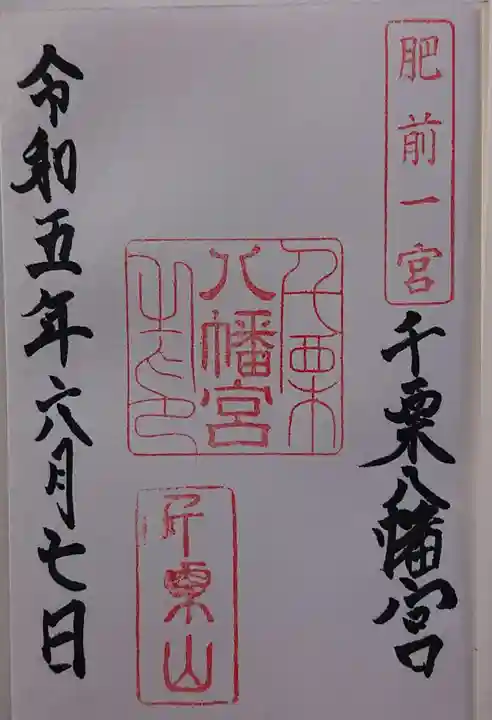 肥前一宮
千栗八幡宮
千栗
八幡宮
之印
千栗山
令和五年六月七日